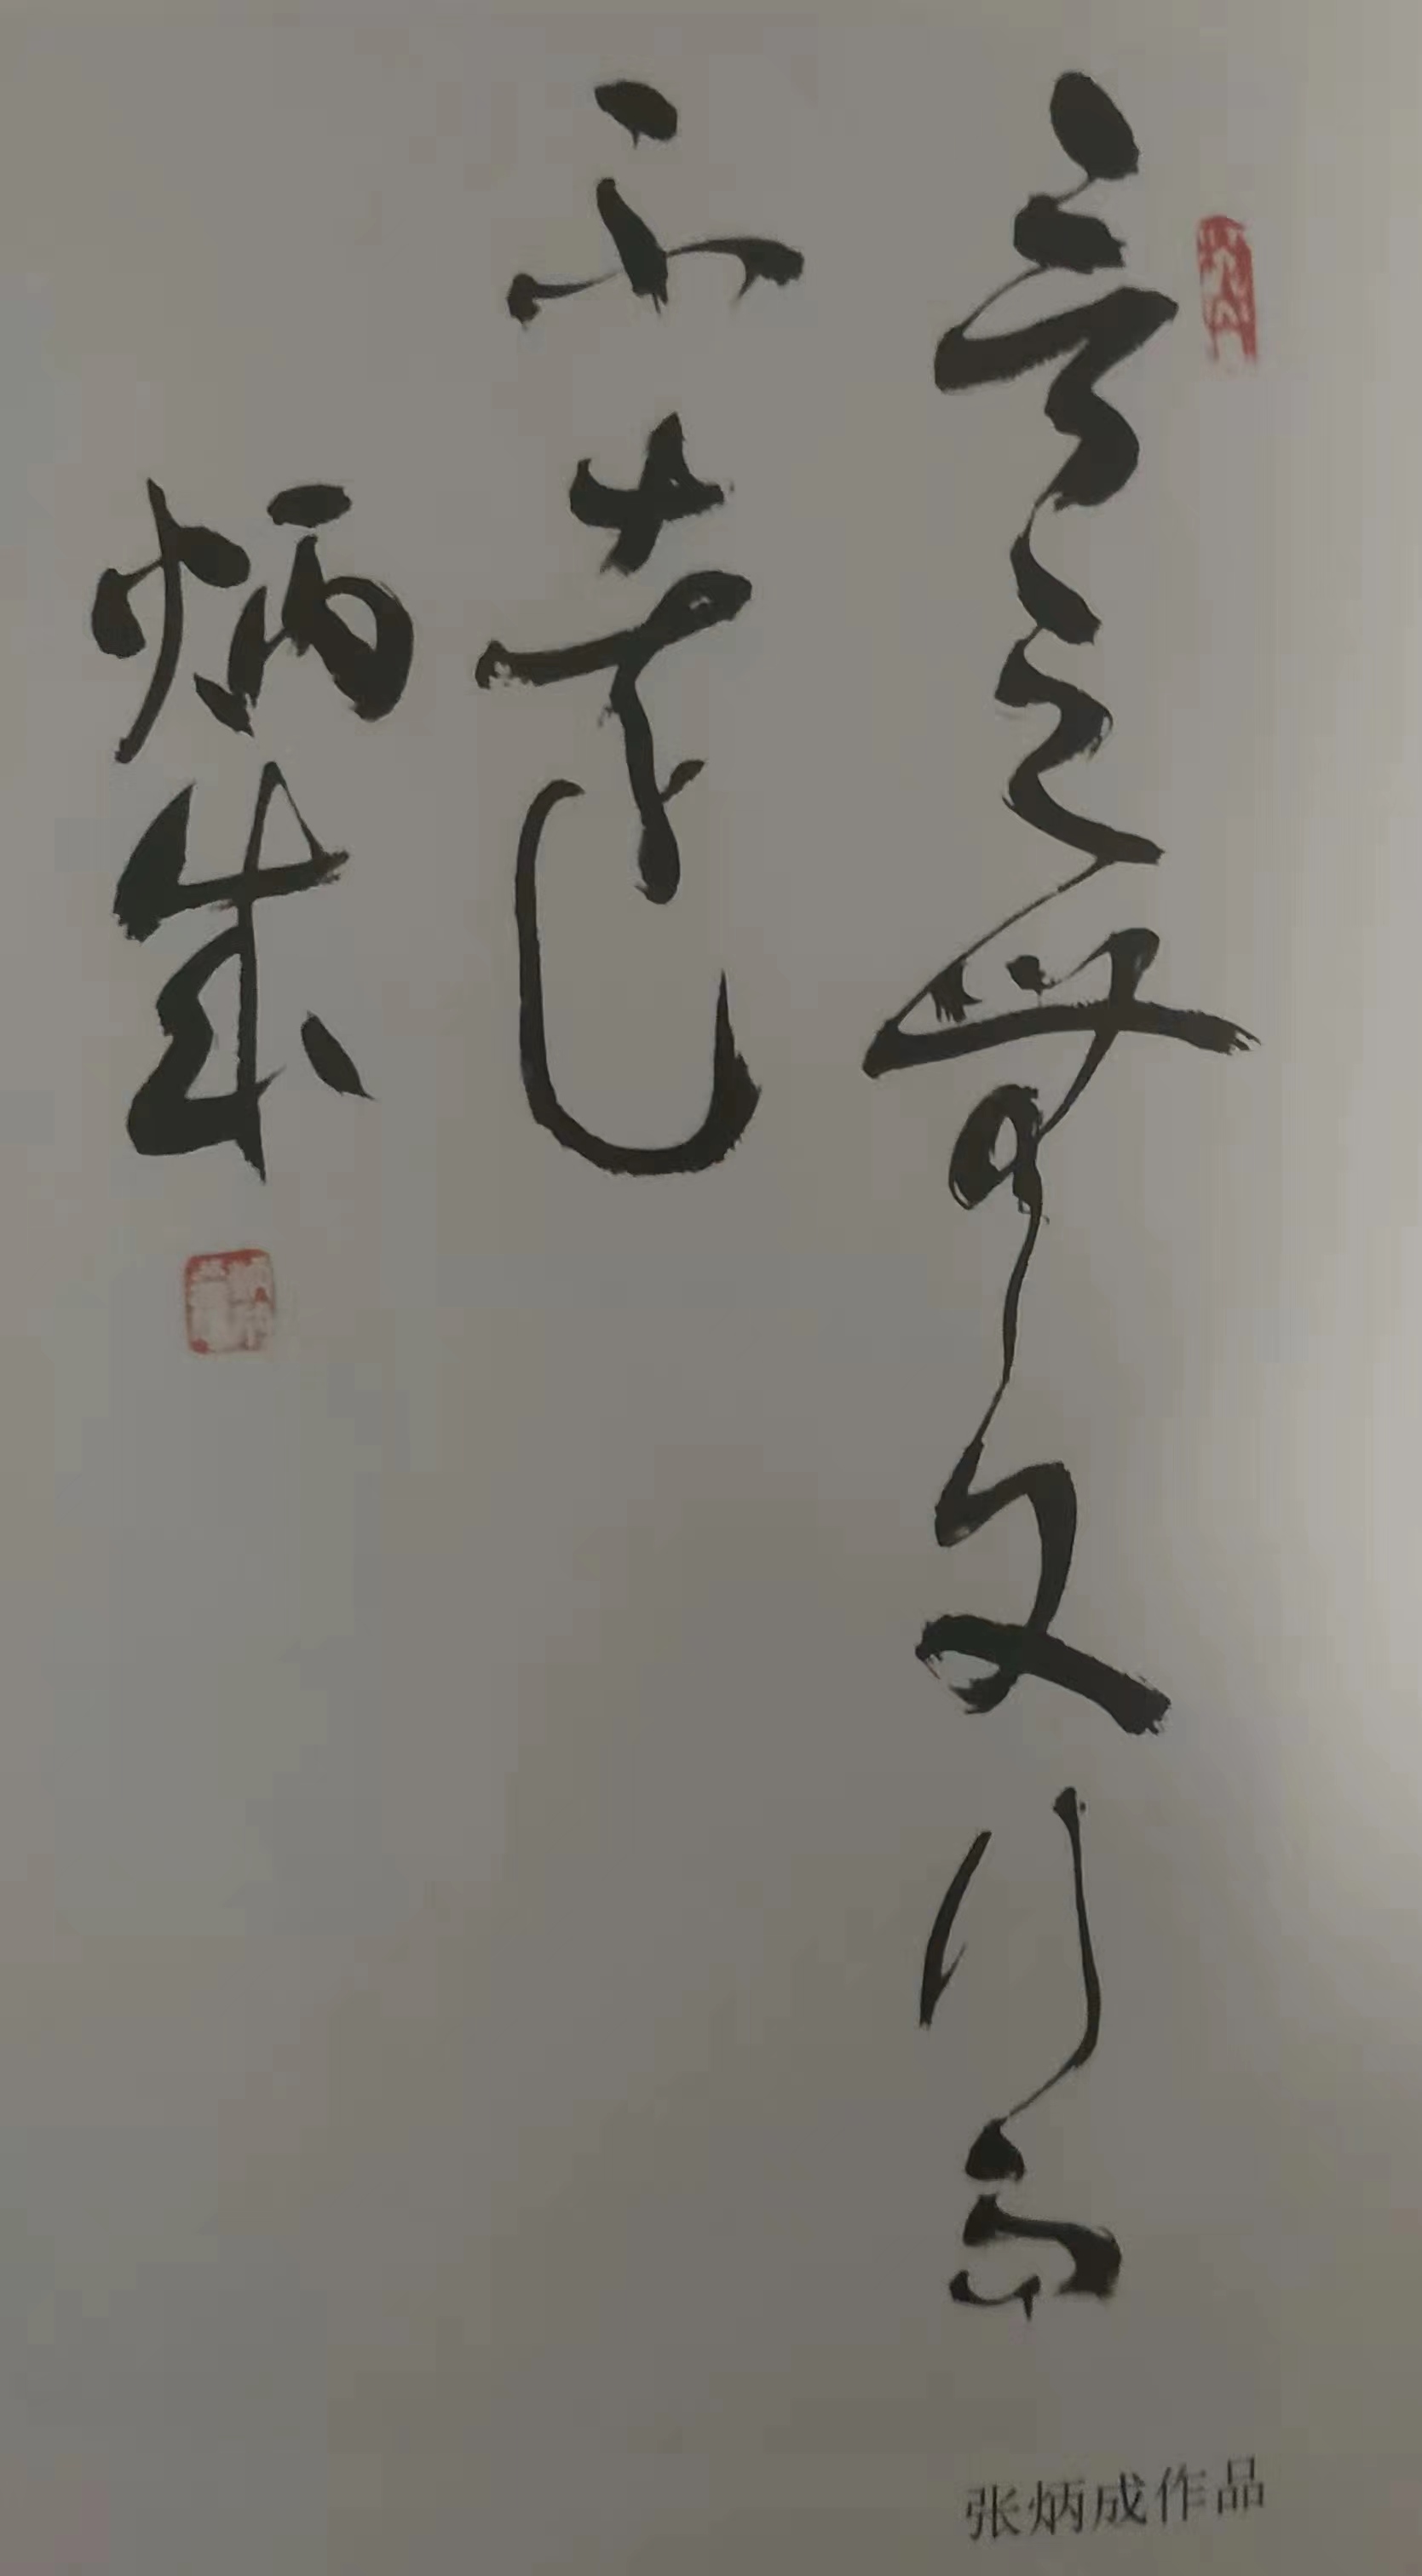 言之無文行而
不遠
炳成
张炳成作品